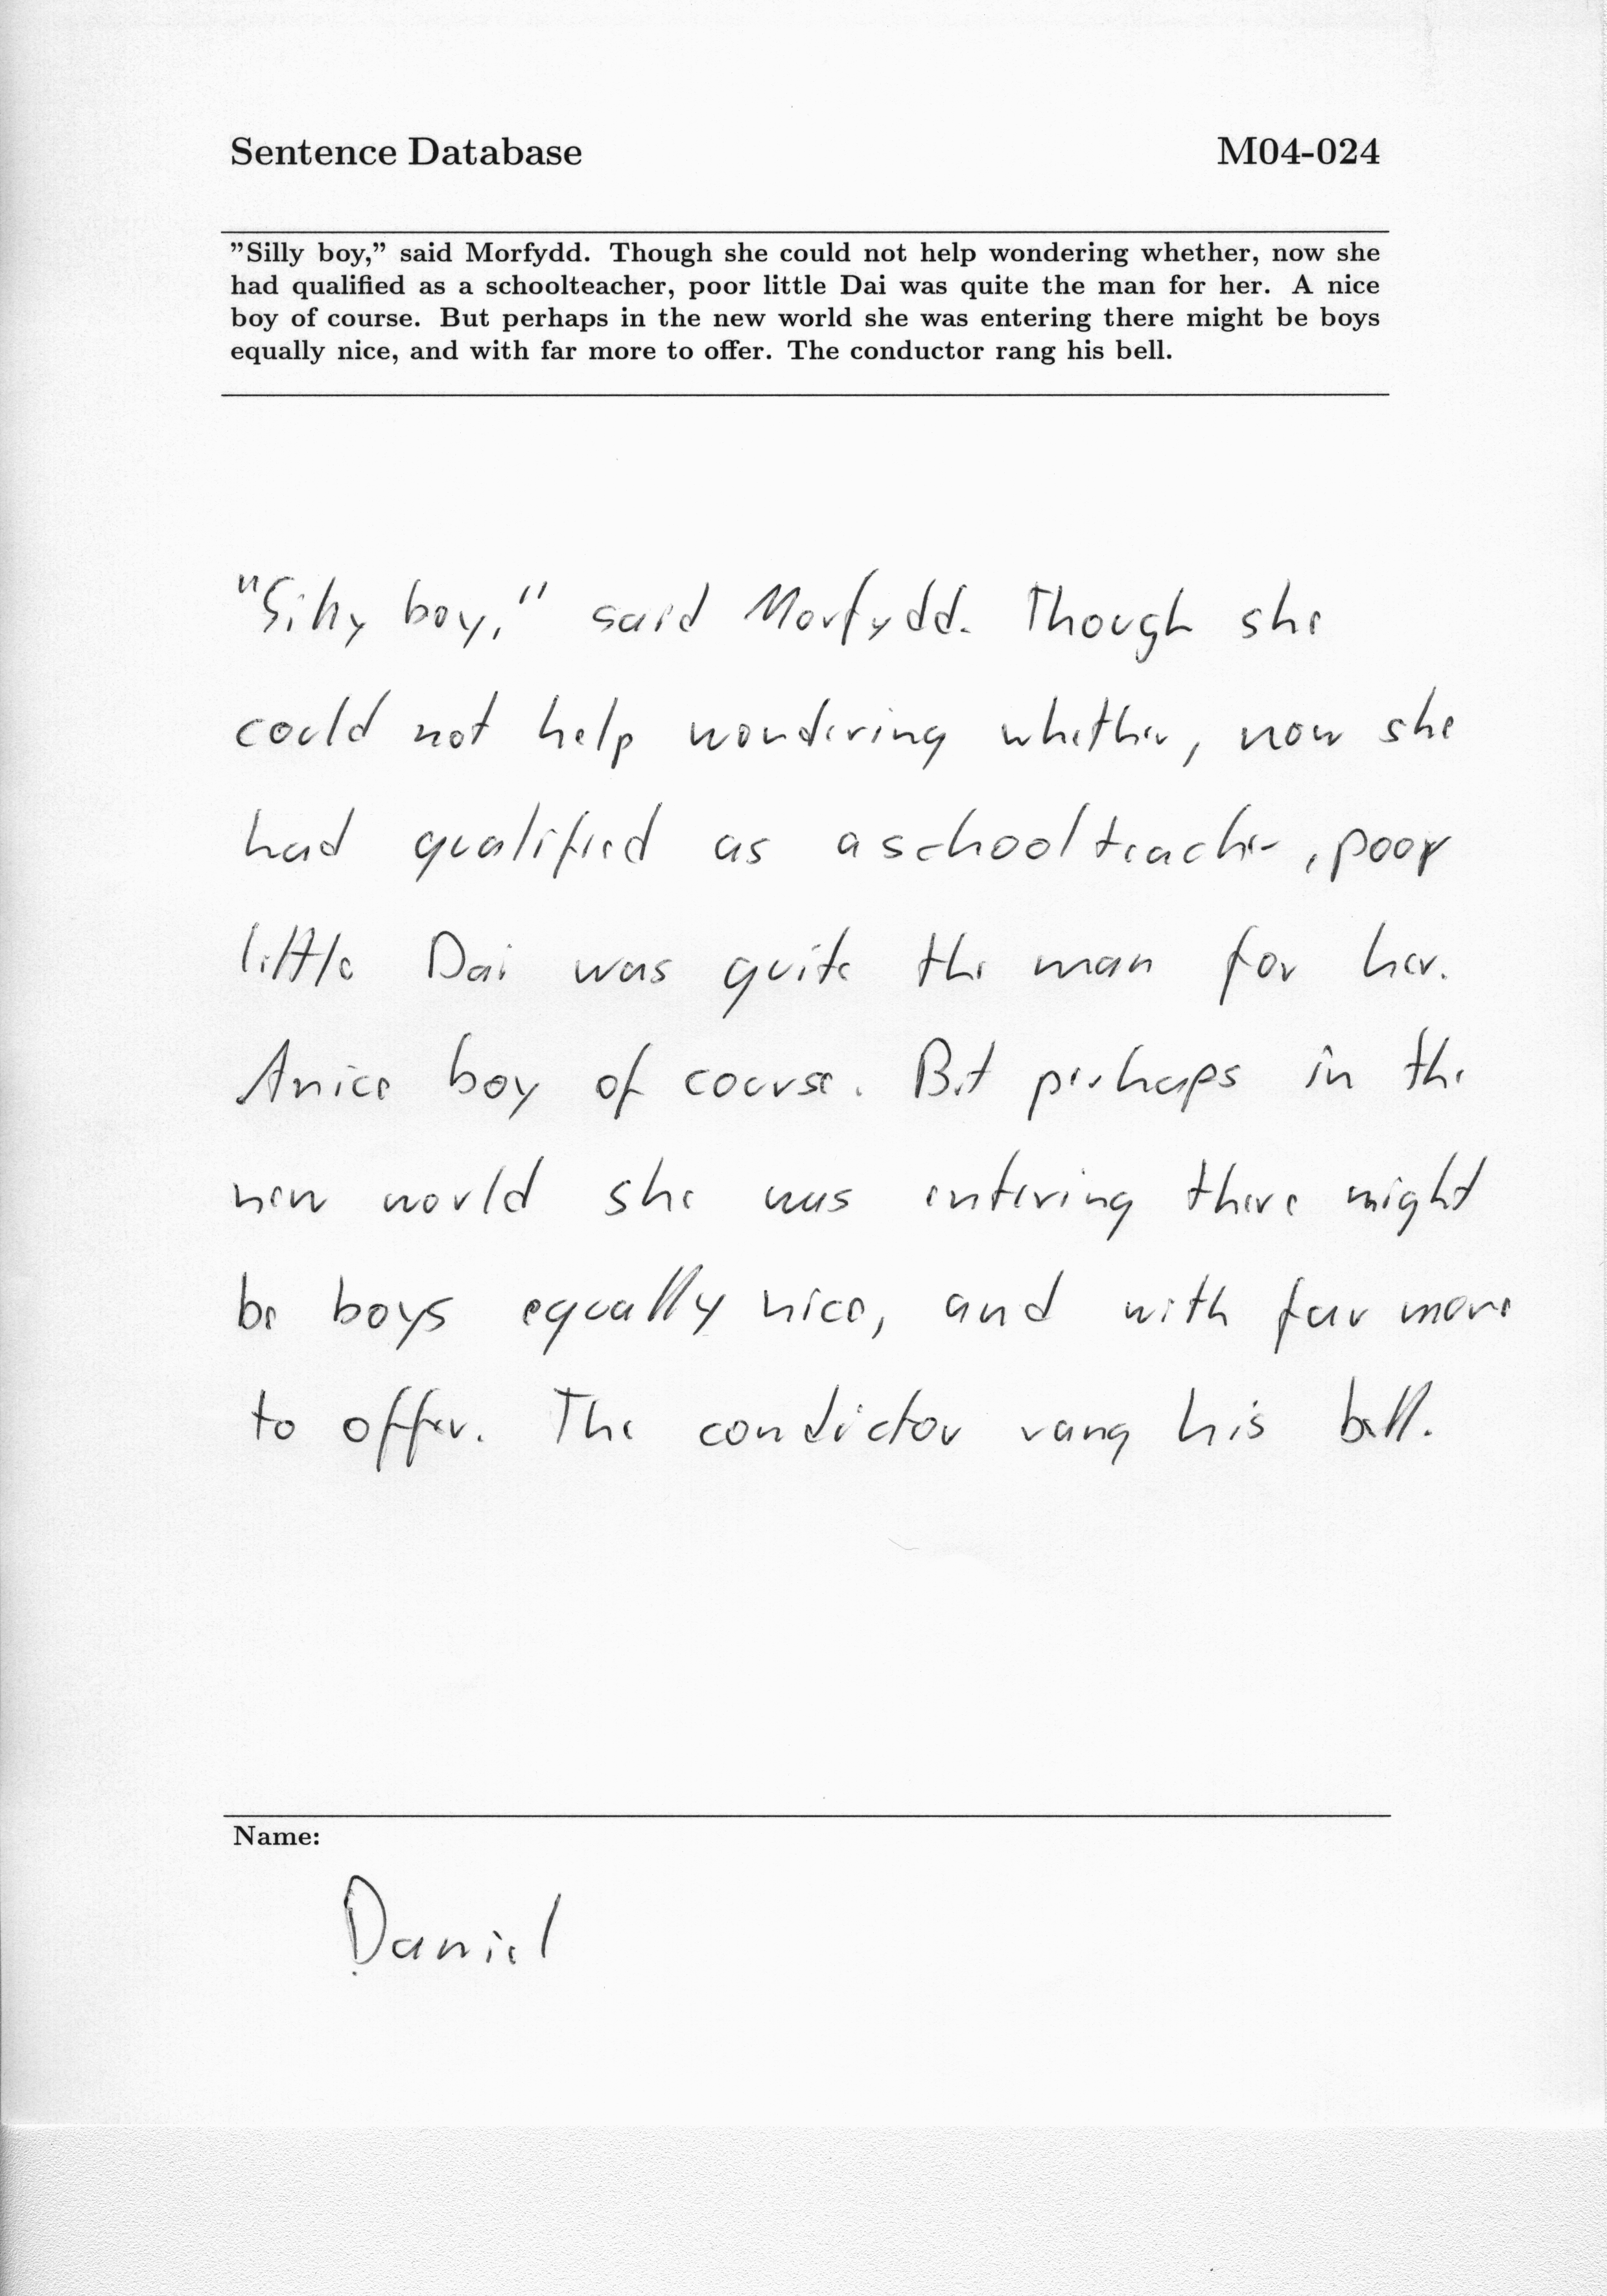 Sentence Database M04-024
"Silly boy," said Morfydd. Though she could not help wondering whether, now she
had qualified as a schoolteacher, poor little Dai was quite the man for her. A nice
boy of course. But perhaps in the new world she was entering there might be boys
equally nice, and with far more to offer. The conductor rang his bell.
"Silly boy," said Morfydd. Though she
could not help wondering whether, now she
had qualified as a schoolteacher, poor
little Dai was quite the man for her.
A nice boy of course. But perhaps in the
new world she was entering there might
be boys equally nice, and with far more
to offer. The conductor rang his bell.
Name:
Daniel